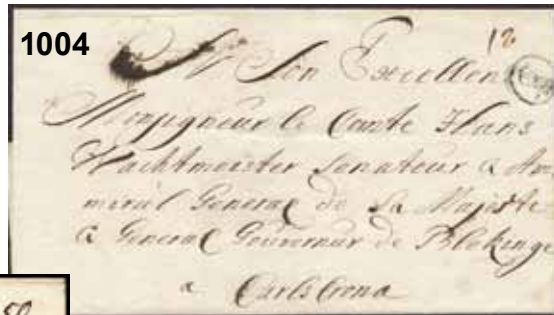 1004
18
A Son Excellen
Monsigneur le Comte Hans
Wachtmeister Senateur & Am
miral General de Sa Majeste
& General Gouverneur de Blekinge
a Carls Crona